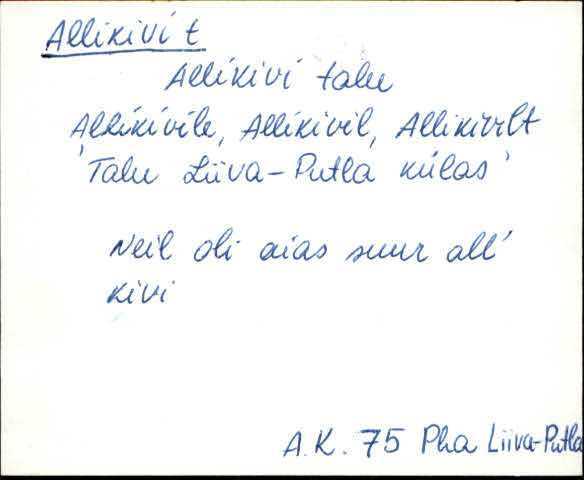 Allikivi t
Allikivi talu
Allikivile, Allikivil, Allikivilt
'Talu Liiva-Putla külas'
Neil oli aias suur all'
kivi
A.K. 75 Pha Liiva-Putla